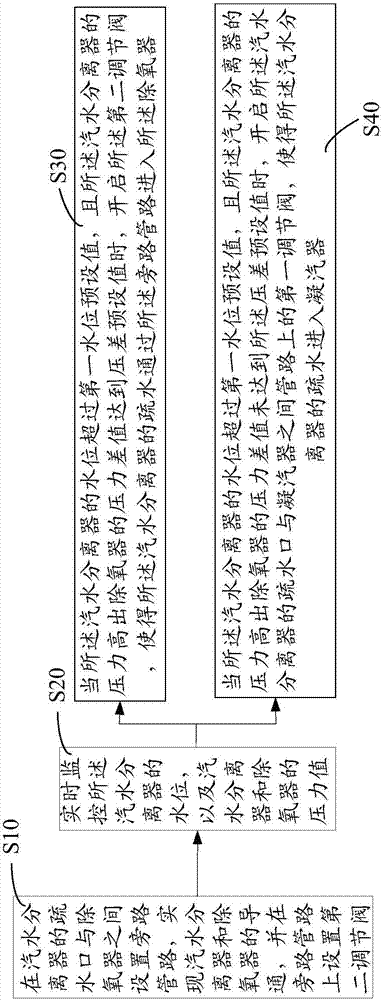 S10
在汽水分
离器的疏
水口与除
氧器之间
设置旁路
管路，实
现汽水分
离器和除
氧器的导
通，并在
旁路管路
上设置第
二调节阀
S20
实时监
控所述
汽水分
离器的
水位，
以及汽
水分离
器和除
氧器的
压力值
S30
当所述汽水分离器的水位超过第一水位预设值，且所述汽水分离器的
压力高出除氧器的压力差值达到压差预设值时，开启所述第二调节阀
，使得所述汽水分离器的疏水通过所述旁路管路进入所述除氧器
S40
当所述汽水分离器的水位超过第一水位预设值，且所述汽水分离器的
压力高出除氧器的压力差值未达到所述压差预设值时，开启所述汽水
分离器的疏水口与凝汽器之间管路上的第一调节阀，使得所述汽水分
离器的疏水进入凝汽器